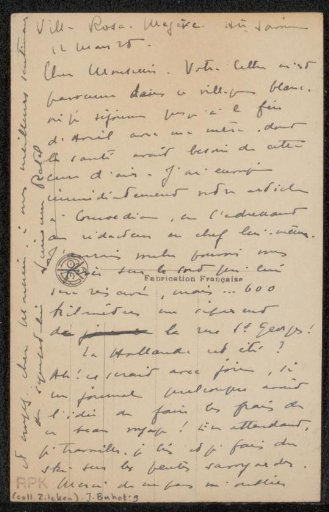 Villa Rosa. Megève. Hte Savoie
12 Mars 25.
Cher Monsieur. Votre lettre m'est
parvenue dans ce village blanc
où je séjourne jusqu'à la fin
d'Avril avec ma mère, dont
la santé avait besoin de cette
cure d'air. J'ai envoyé
immédiatement votre article
à Comoedia, en l'adressant
au rédacteur en chef lui-même.
sur le sort qui lui
sera réservé, mais... 600
kilomètres me séparent
de la rue St Georges!
La Hollande cet été?
Ah! ce serait avec joie, si
un journal quelconque avait
l'idée de faire les frais de
ce beau voyage! En attendant,
je travaille, je lis et je fais du
ski sur les pentes savoyardes.
Merci de ne pas m'oublier
et croyez, cher Monsieur, à mes meilleurs sentiments
Fabrication Française
RPK
(coll. Zilcken). J. Buhot: 9